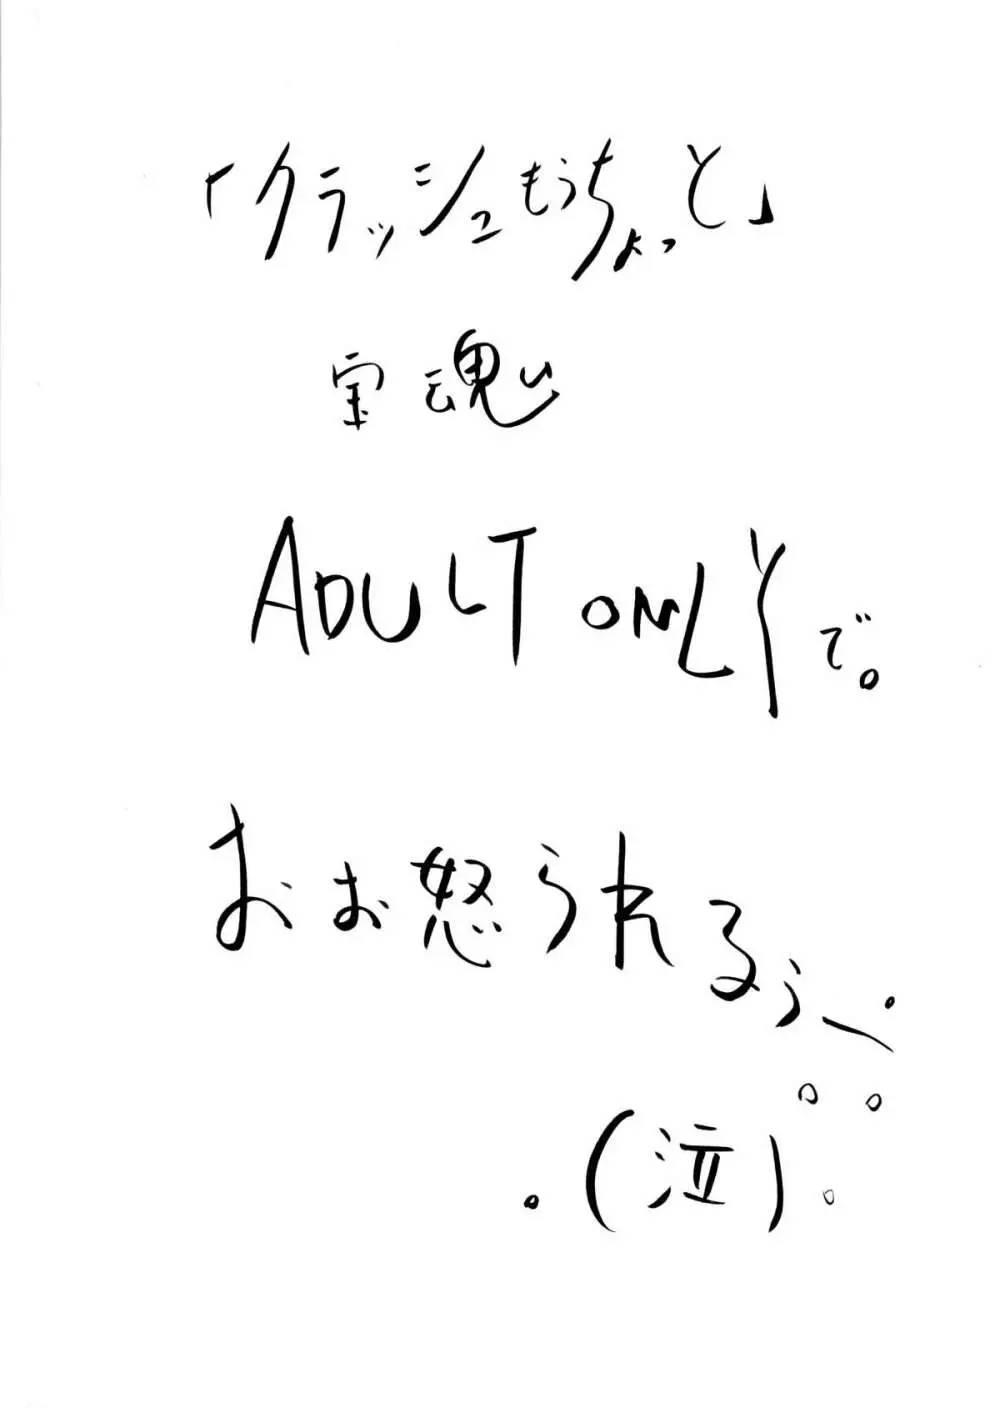 「クラッシュもうちょっと」
宝魂
ADULT ONLYで。
おお怒られるぅ〜
(泣)